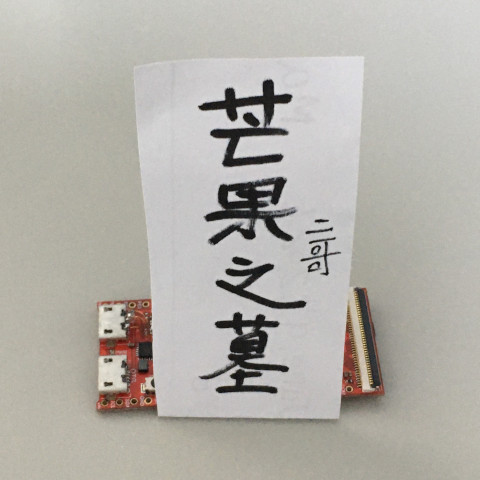 芒果之墓
二哥